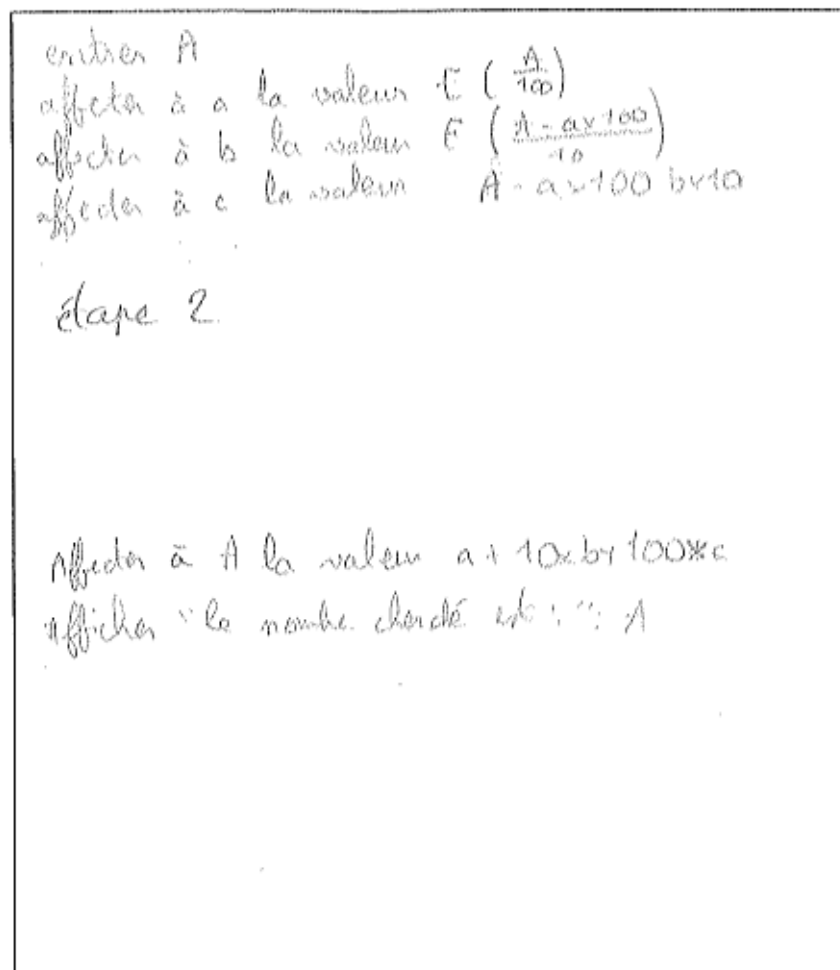 entrer A
affecter à a la valeur E ( A/100 )
affecter à b la valeur E ( A - a×100 / 10 )
affecter à c la valeur A - a×100 b×10
étape 2
Affecter à A la valeur a + 10×b+ 100*c
Afficher "le nombre cherché est : ": A